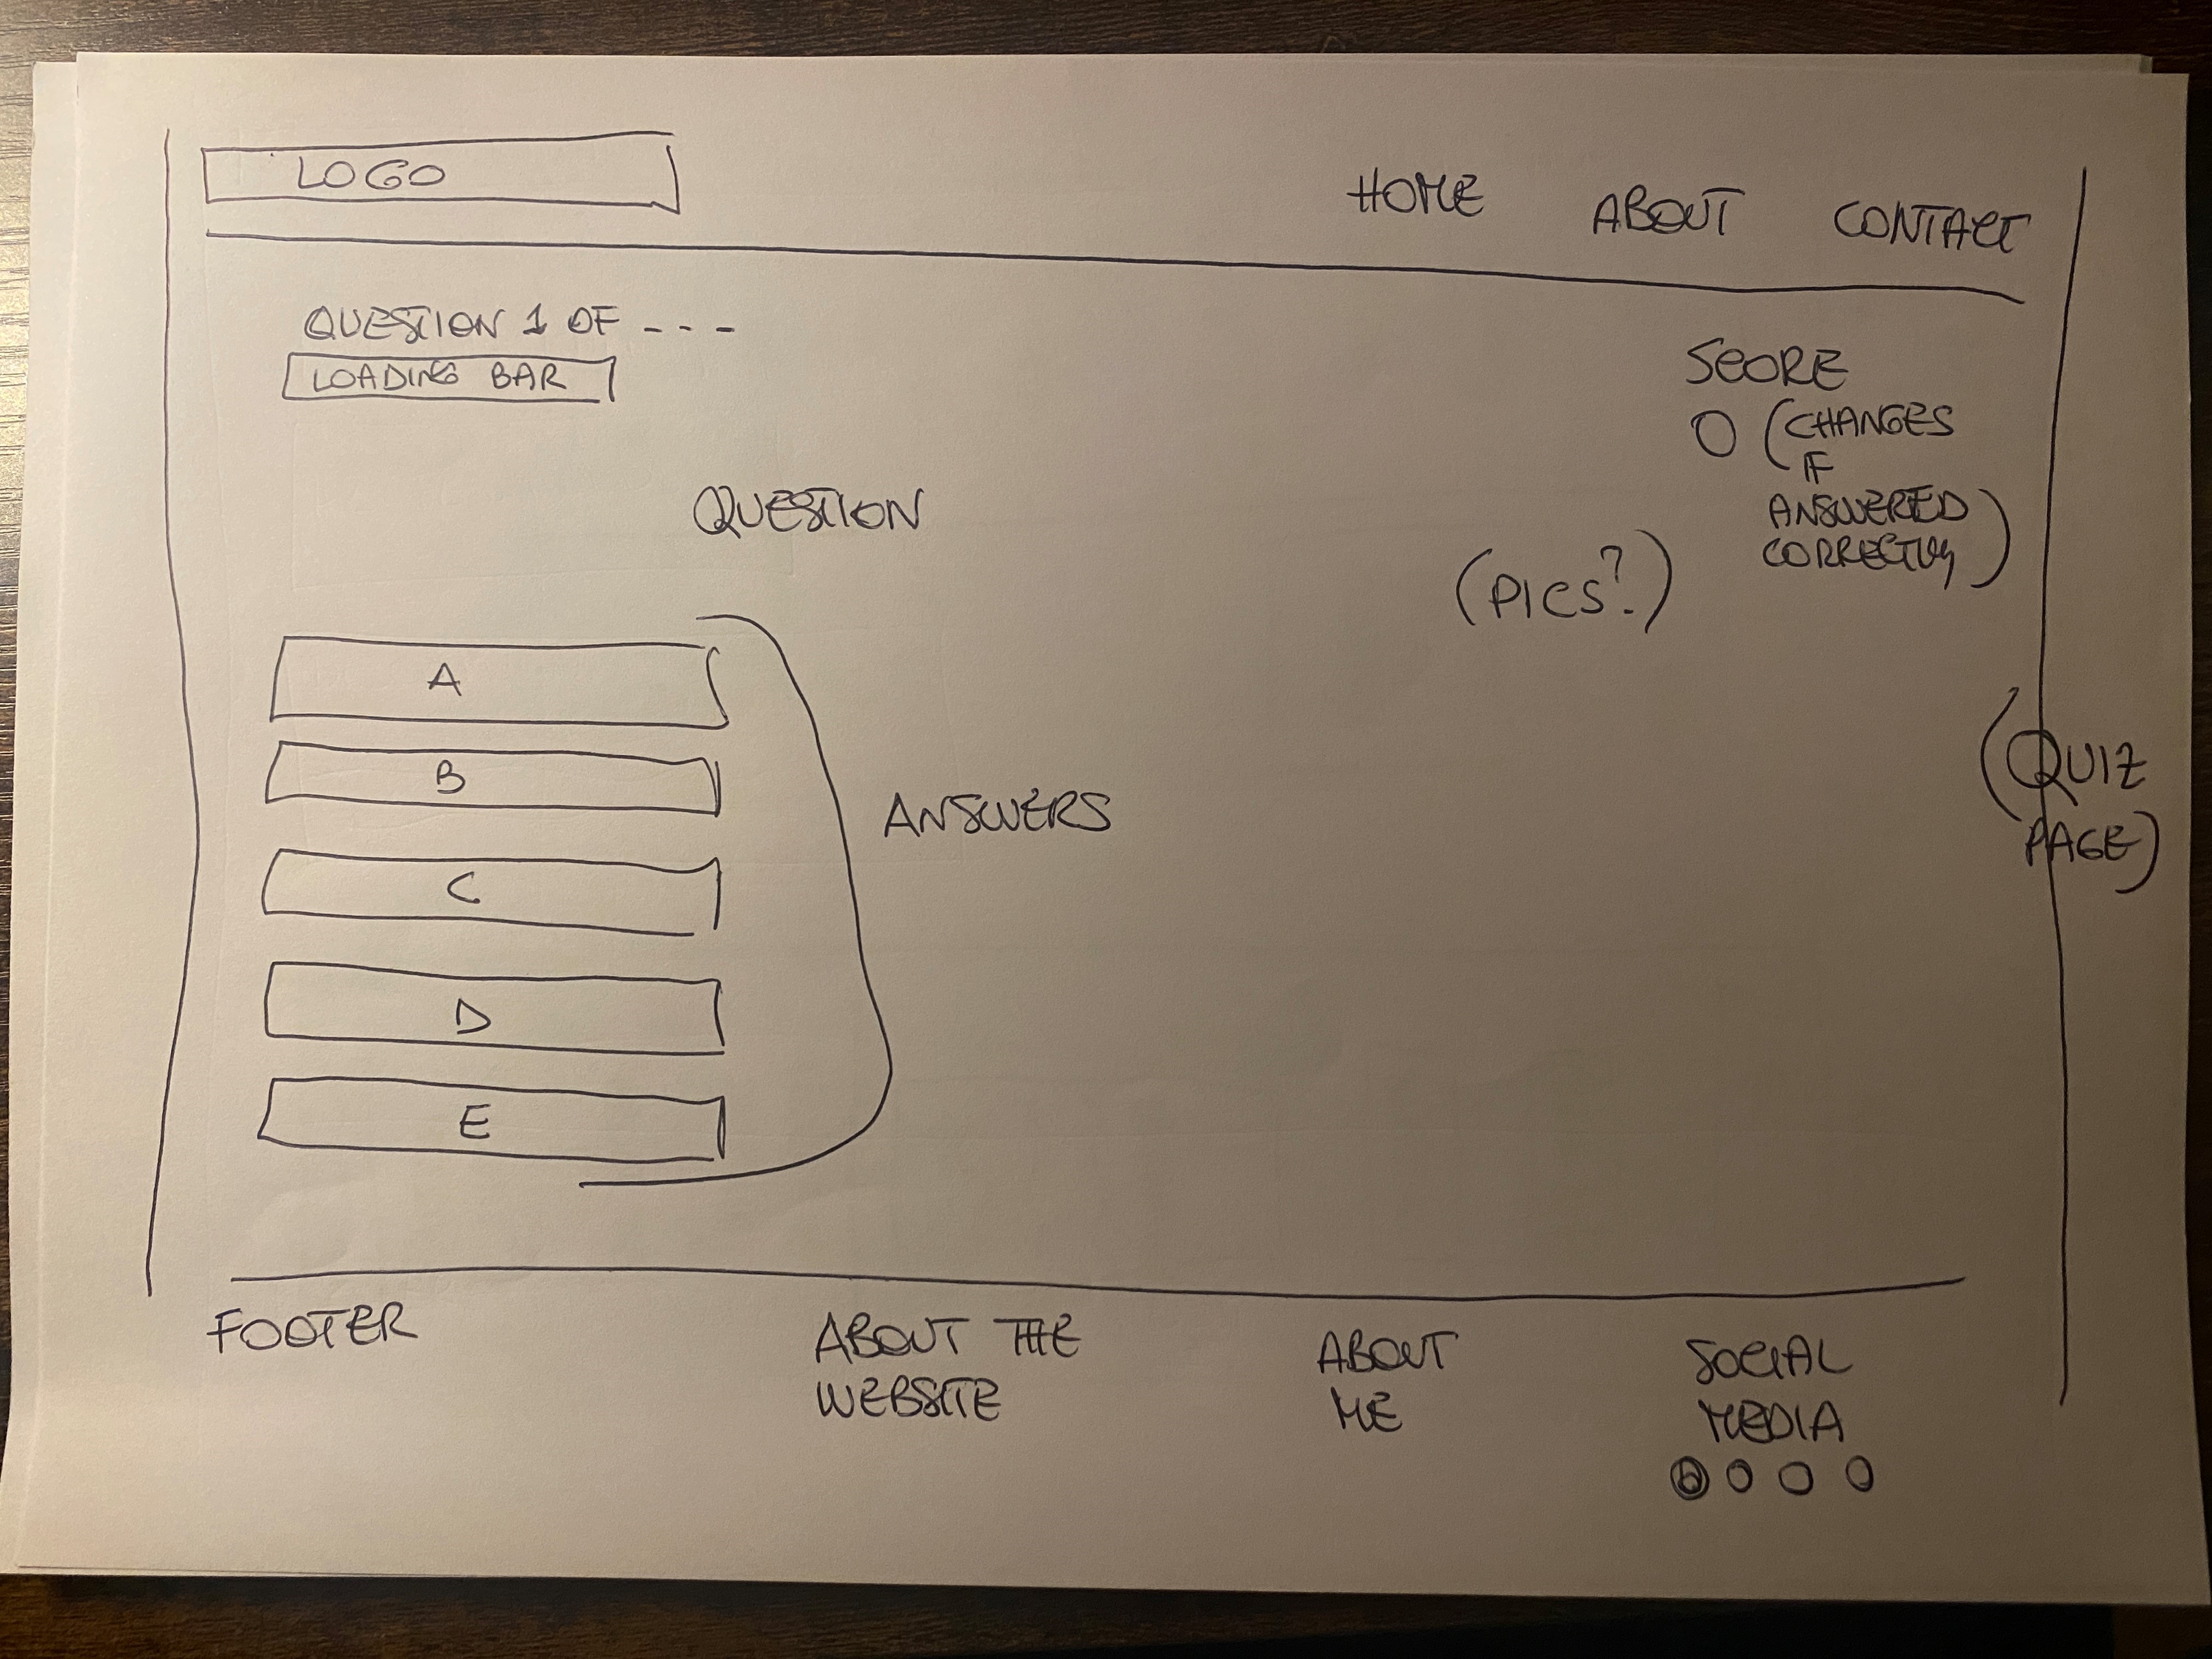 LOGO
HOME ABOUT CONTACT
QUESTION 1 OF ---
LOADING BAR
SCORE
0 (CHANGES
IF
ANSWERED
CORRECTLY)
QUESTION
(PICS?)
A
B
C
D
E
ANSWERS
(QUIZ
PAGE)
FOOTER
ABOUT THE
WEBSITE
ABOUT
ME
SOCIAL
MEDIA